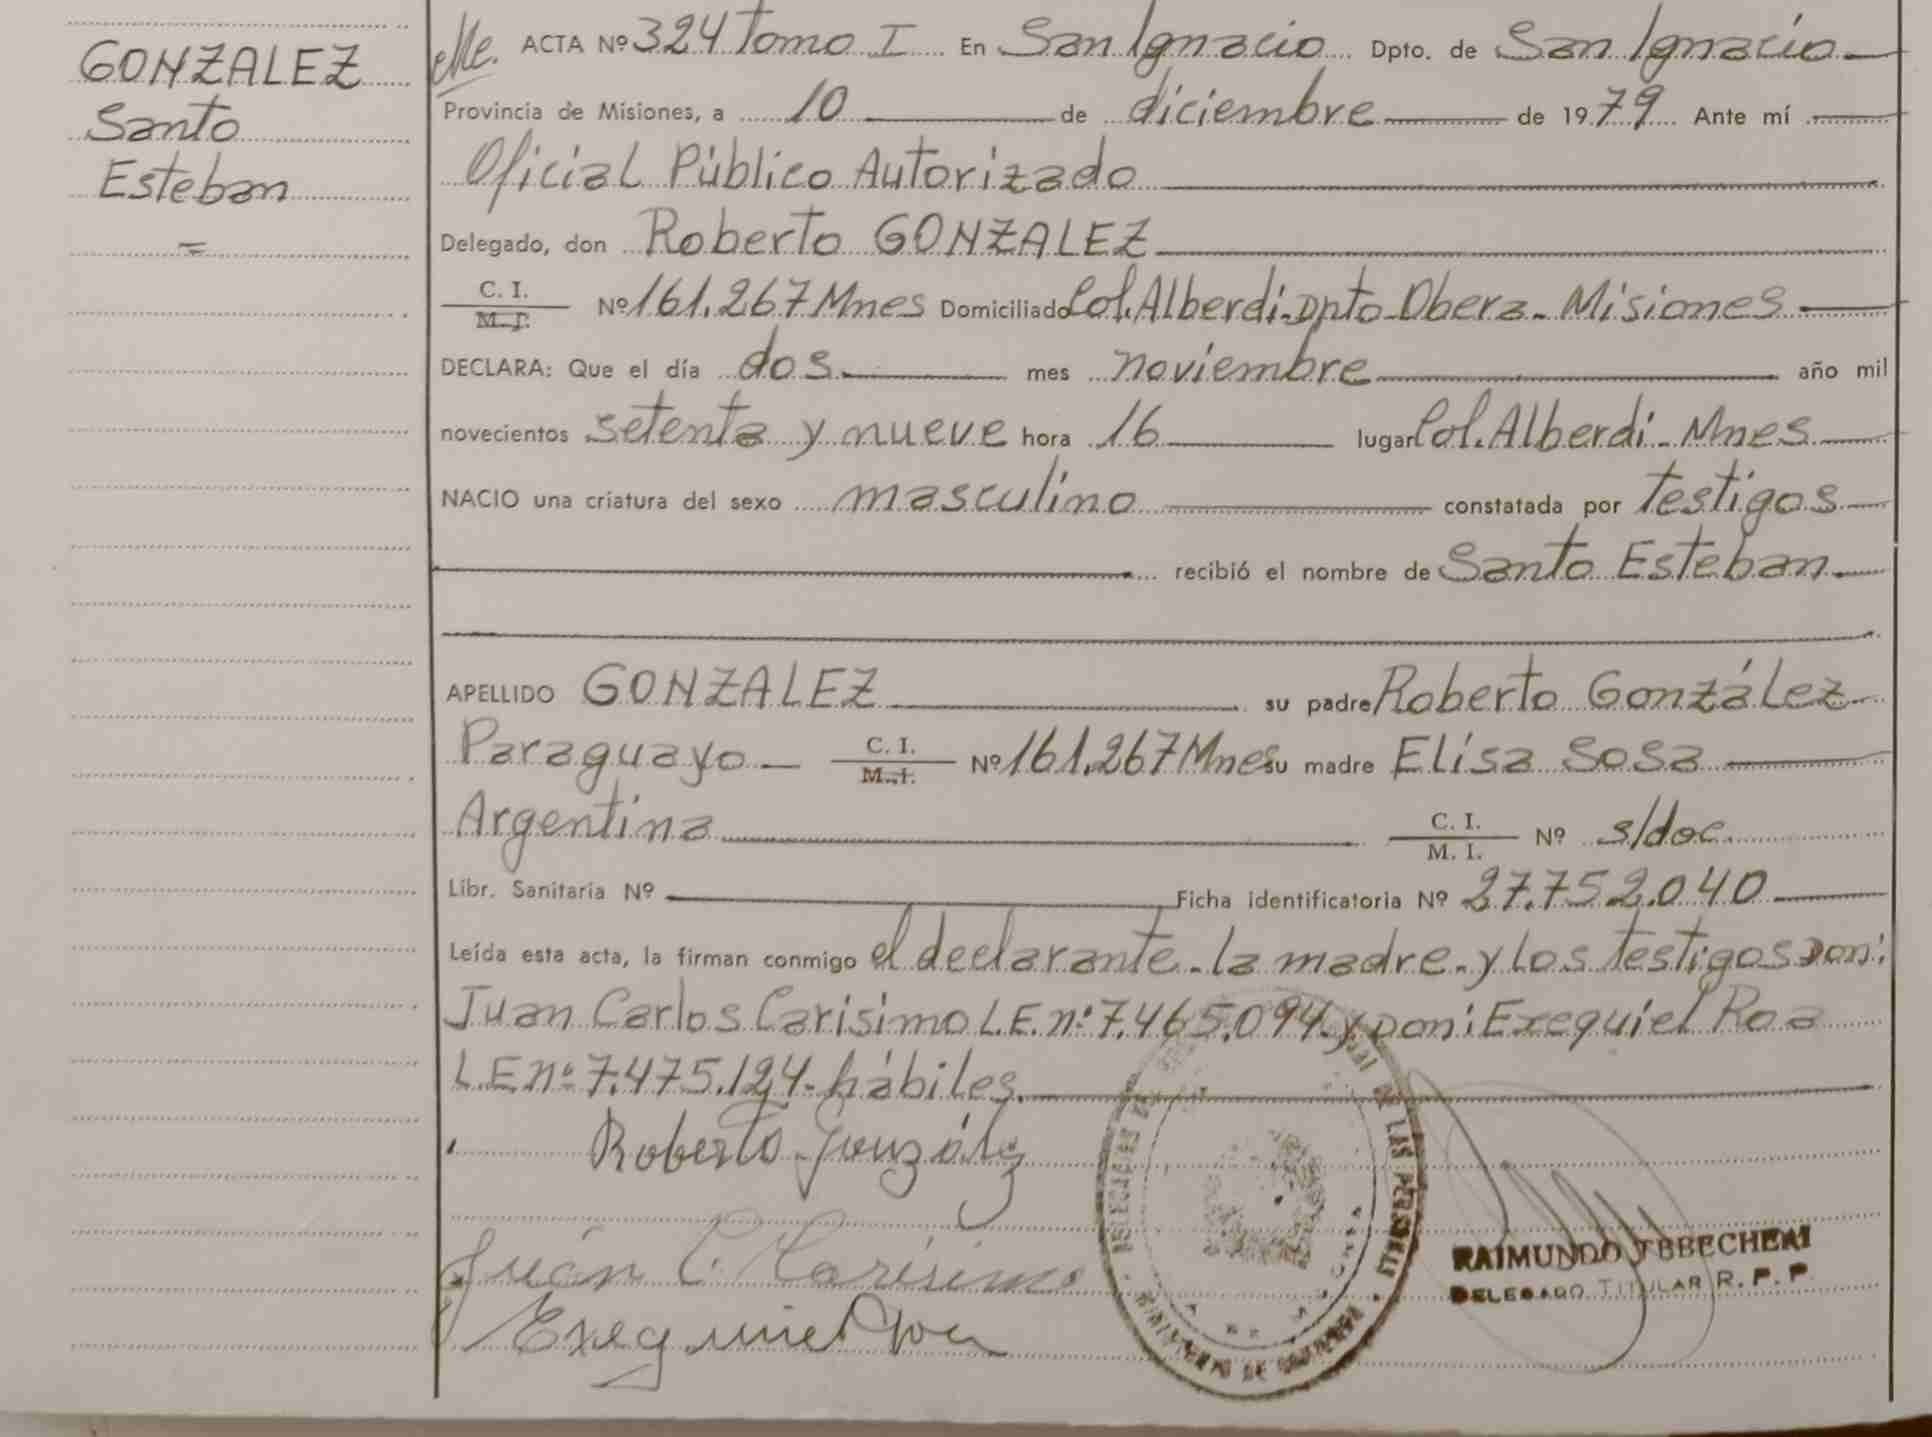 GONZALEZ
Santo
Esteban
ACTA Nº 324 Tomo I En San Ignacio Dpto. de San Ignacio
Provincia de Misiones, a 10 de diciembre de 1979 Ante mí
Oficial Público Autorizado
Delegado, don Roberto GONZALEZ
C. I.
M. I. Nº 161.267 Mnes Domiciliado Col. Alberdi-Dpto-Obera-Misiones
DECLARA: Que el día dos mes noviembre año mil
novecientos setenta y nueve hora 16 lugar Col. Alberdi-Mnes
NACIO una criatura del sexo masculino constatada por testigos
recibió el nombre de Santo Esteban
APELLIDO GONZALEZ su padre Roberto González
Paraguayo C. I.
M. I. Nº 161.267 Mnes su madre Elisa Sosa
Argentina C. I.
M. I. Nº s/doc
Libr. Sanitaria Nº Ficha identificatoria Nº 27.752.040
Leída esta acta, la firman conmigo el declarante-la madre-y los testigos Don:
Juan Carlos Carisimo L.E. nº 7.465.094 y Don: Exequiel Roa
L.E nº 7.475.124-hábiles.
Roberto González
Juan C. Carisimo
Exequiel Roa
DE LAS PERSONAS
MINISTERIO DE GOBIERNO
RAIMUNDO
DELEGADO TITULAR R. P. P.